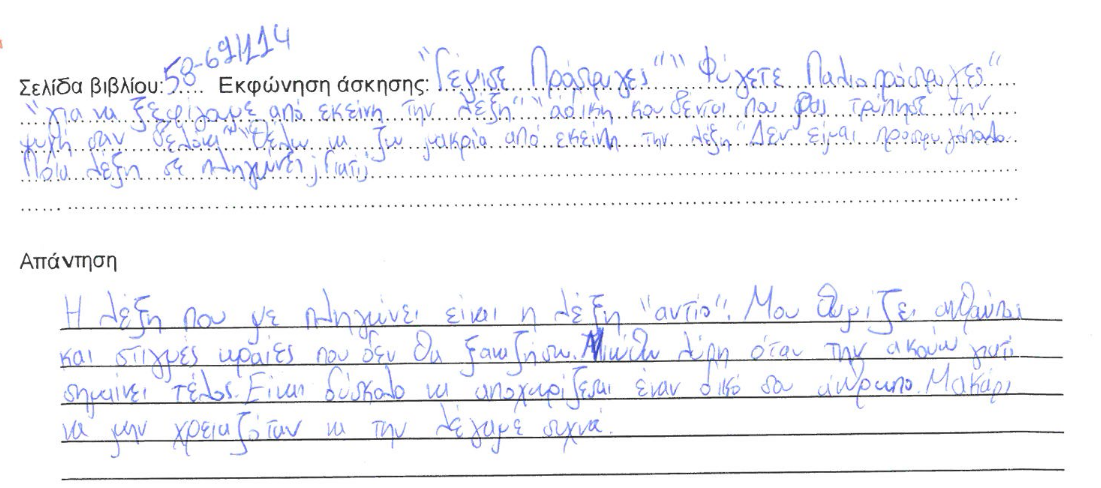 Σελίδα βιβλίου: 58-69/114 Εκφώνηση άσκησης: "Γέμισε Πρόσφυγες" "Φύγετε Παλιοπρόσφυγες"
"για να ξεφύγουμε από εκείνη την λέξη" "άδικη κουβέντα που μας τρύπησε την
ψυχή σαν βελόνα" "Θέλω να ζω μακριά από εκείνη την λέξη "Δεν είμαι προσφυγόπουλο
Ποια λέξη σε πληγώνει; Γιατί;
Απάντηση
Η λέξη που με πληγώνει είναι η λέξη "αντίο". Μου θυμίζει ανθρώπους
και στιγμές ωραίες που δεν θα ξαναζήσω. Νιώθω λύπη όταν την ακούω γιατί
σημαίνει τέλος. Είναι δύσκολο να αποχωρίζεσαι έναν δικό σου άνθρωπο. Μακάρι
να μην χρειαζόταν να την λέγαμε συχνά.